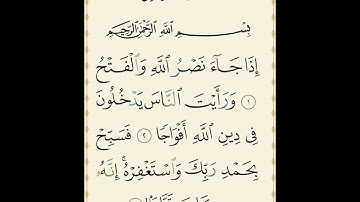 بِسْمِ اللَّهِ الرَّحْمَٰنِ الرَّحِيمِ
إِذَا جَآءَ نَصْرُ اللَّهِ وَالْفَتْحُ
١ وَرَأَيْتَ النَّاسَ يَدْخُلُونَ
فِى دِينِ اللَّهِ أَفْوَاجًا ٢ فَسَبِّحْ
بِحَمْدِ رَبِّكَ وَاسْتَغْفِرْهُ ۚ إِنَّهُ